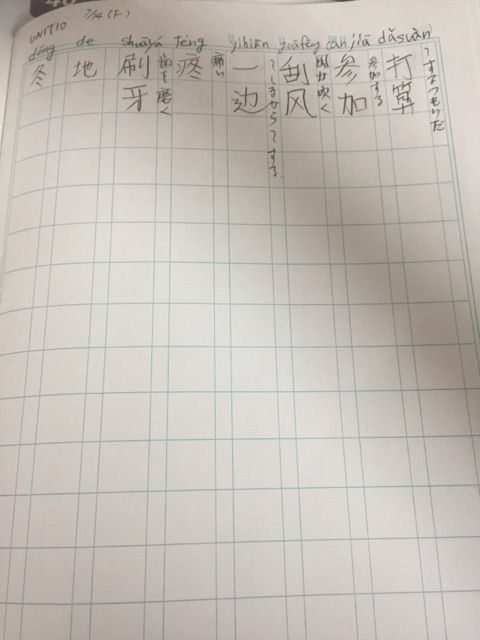 UNIT10 7/14(F)
dōng de shuāyá téng yìbiān guāfēng cān jiā dǎsuàn
~するつもりだ
打算
参加する
参加
風が吹く
刮风
~しながら~する
一边
痛い
疼
歯を磨く
刷牙
地
冬